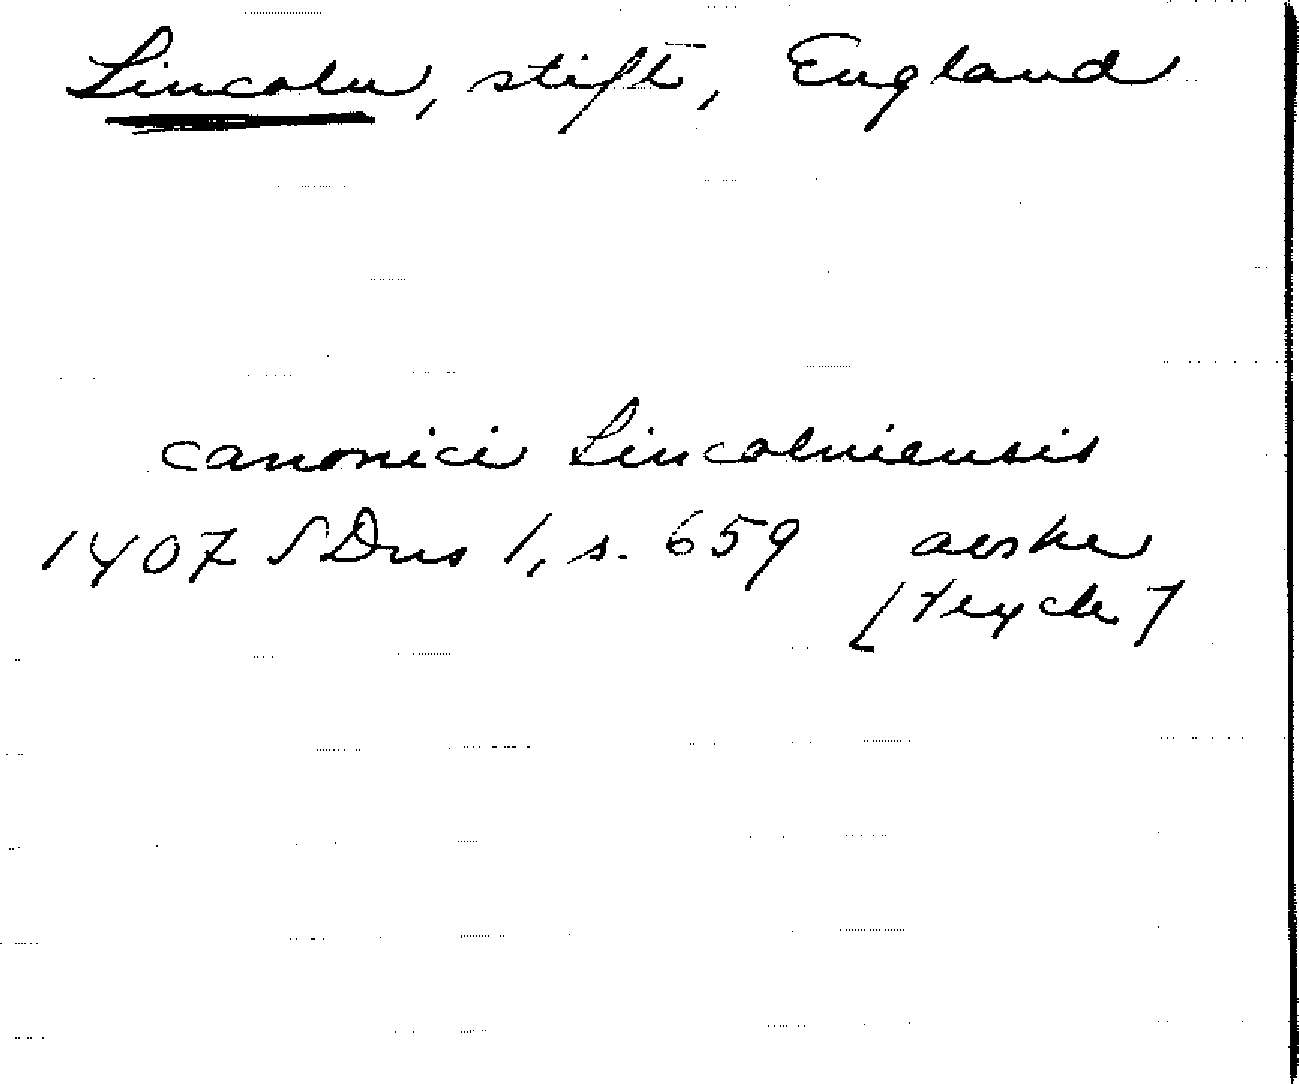 Lincoln, stift, England
canonici Lincolniensis
1407 SDns 1, s. 659 avskr
[tryck]